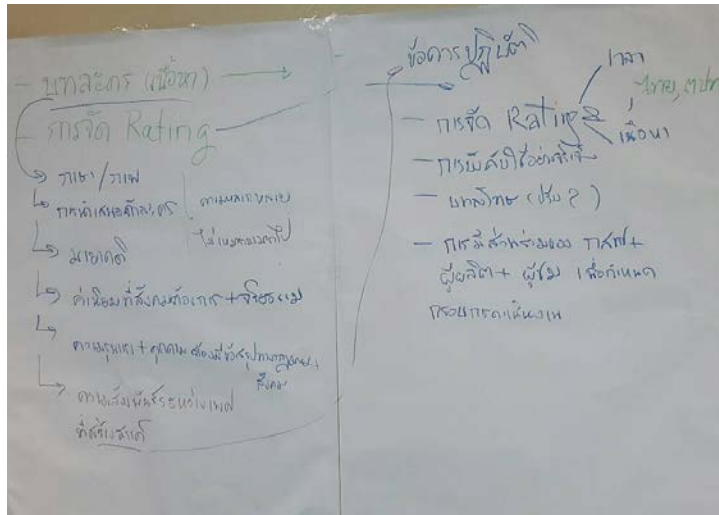 - บทละคร (เนื้อหา)
- การจัด Rating
ภาษา/ภาพ
การนำเสนอตัวละคร
ความหลากหลาย
มายาคติ
ค่านิยมที่สังคมต้องการ + จริยธรรม
ความรุนแรง + คุกคาม ต้องมีข้อสรุปทางกฎหมาย +
สังคม
ความสัมพันธ์ระหว่างเพศ
ที่สร้างสรรค์
ข้อควรปฏิบัติ
- การจัด Rating
เวลา
ไทย, ตปท
เนื้อหา
- การบังคับใช้อย่างจริงจัง
- บทลงโทษ (ปรับ ?)
- การมีส่วนร่วมของ กสทช +
ผู้ผลิต + ผู้ชม เพื่อกำหนด
กรอบการดำเนินงาน